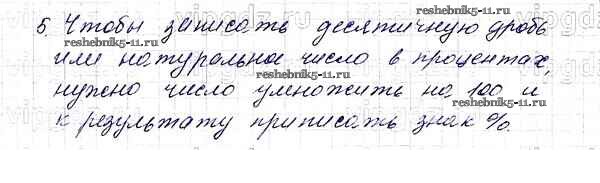 5. Чтобы записать десятичную дробь
reshebnik5-11.ru
или натуральное число в процентах,
нужно число умножить на 100 и
reshebnik5-11.ru
к результату приписать знак %.
reshebnik5-11.ru